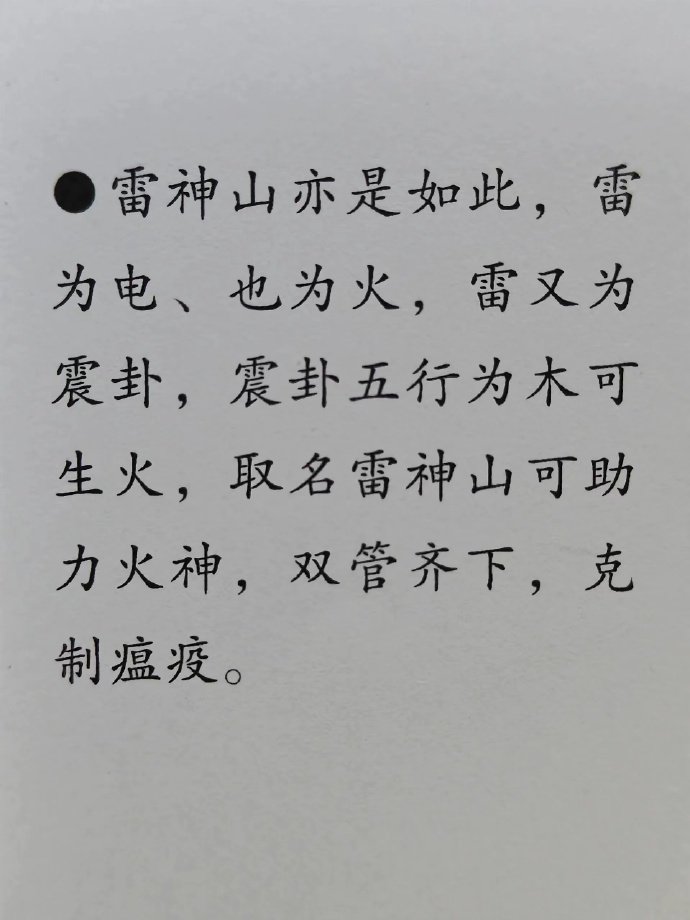 ●雷神山亦是如此，雷
为电、也为火，雷又为
震卦，震卦五行为木可
生火，取名雷神山可助
力火神，双管齐下，克
制瘟疫。